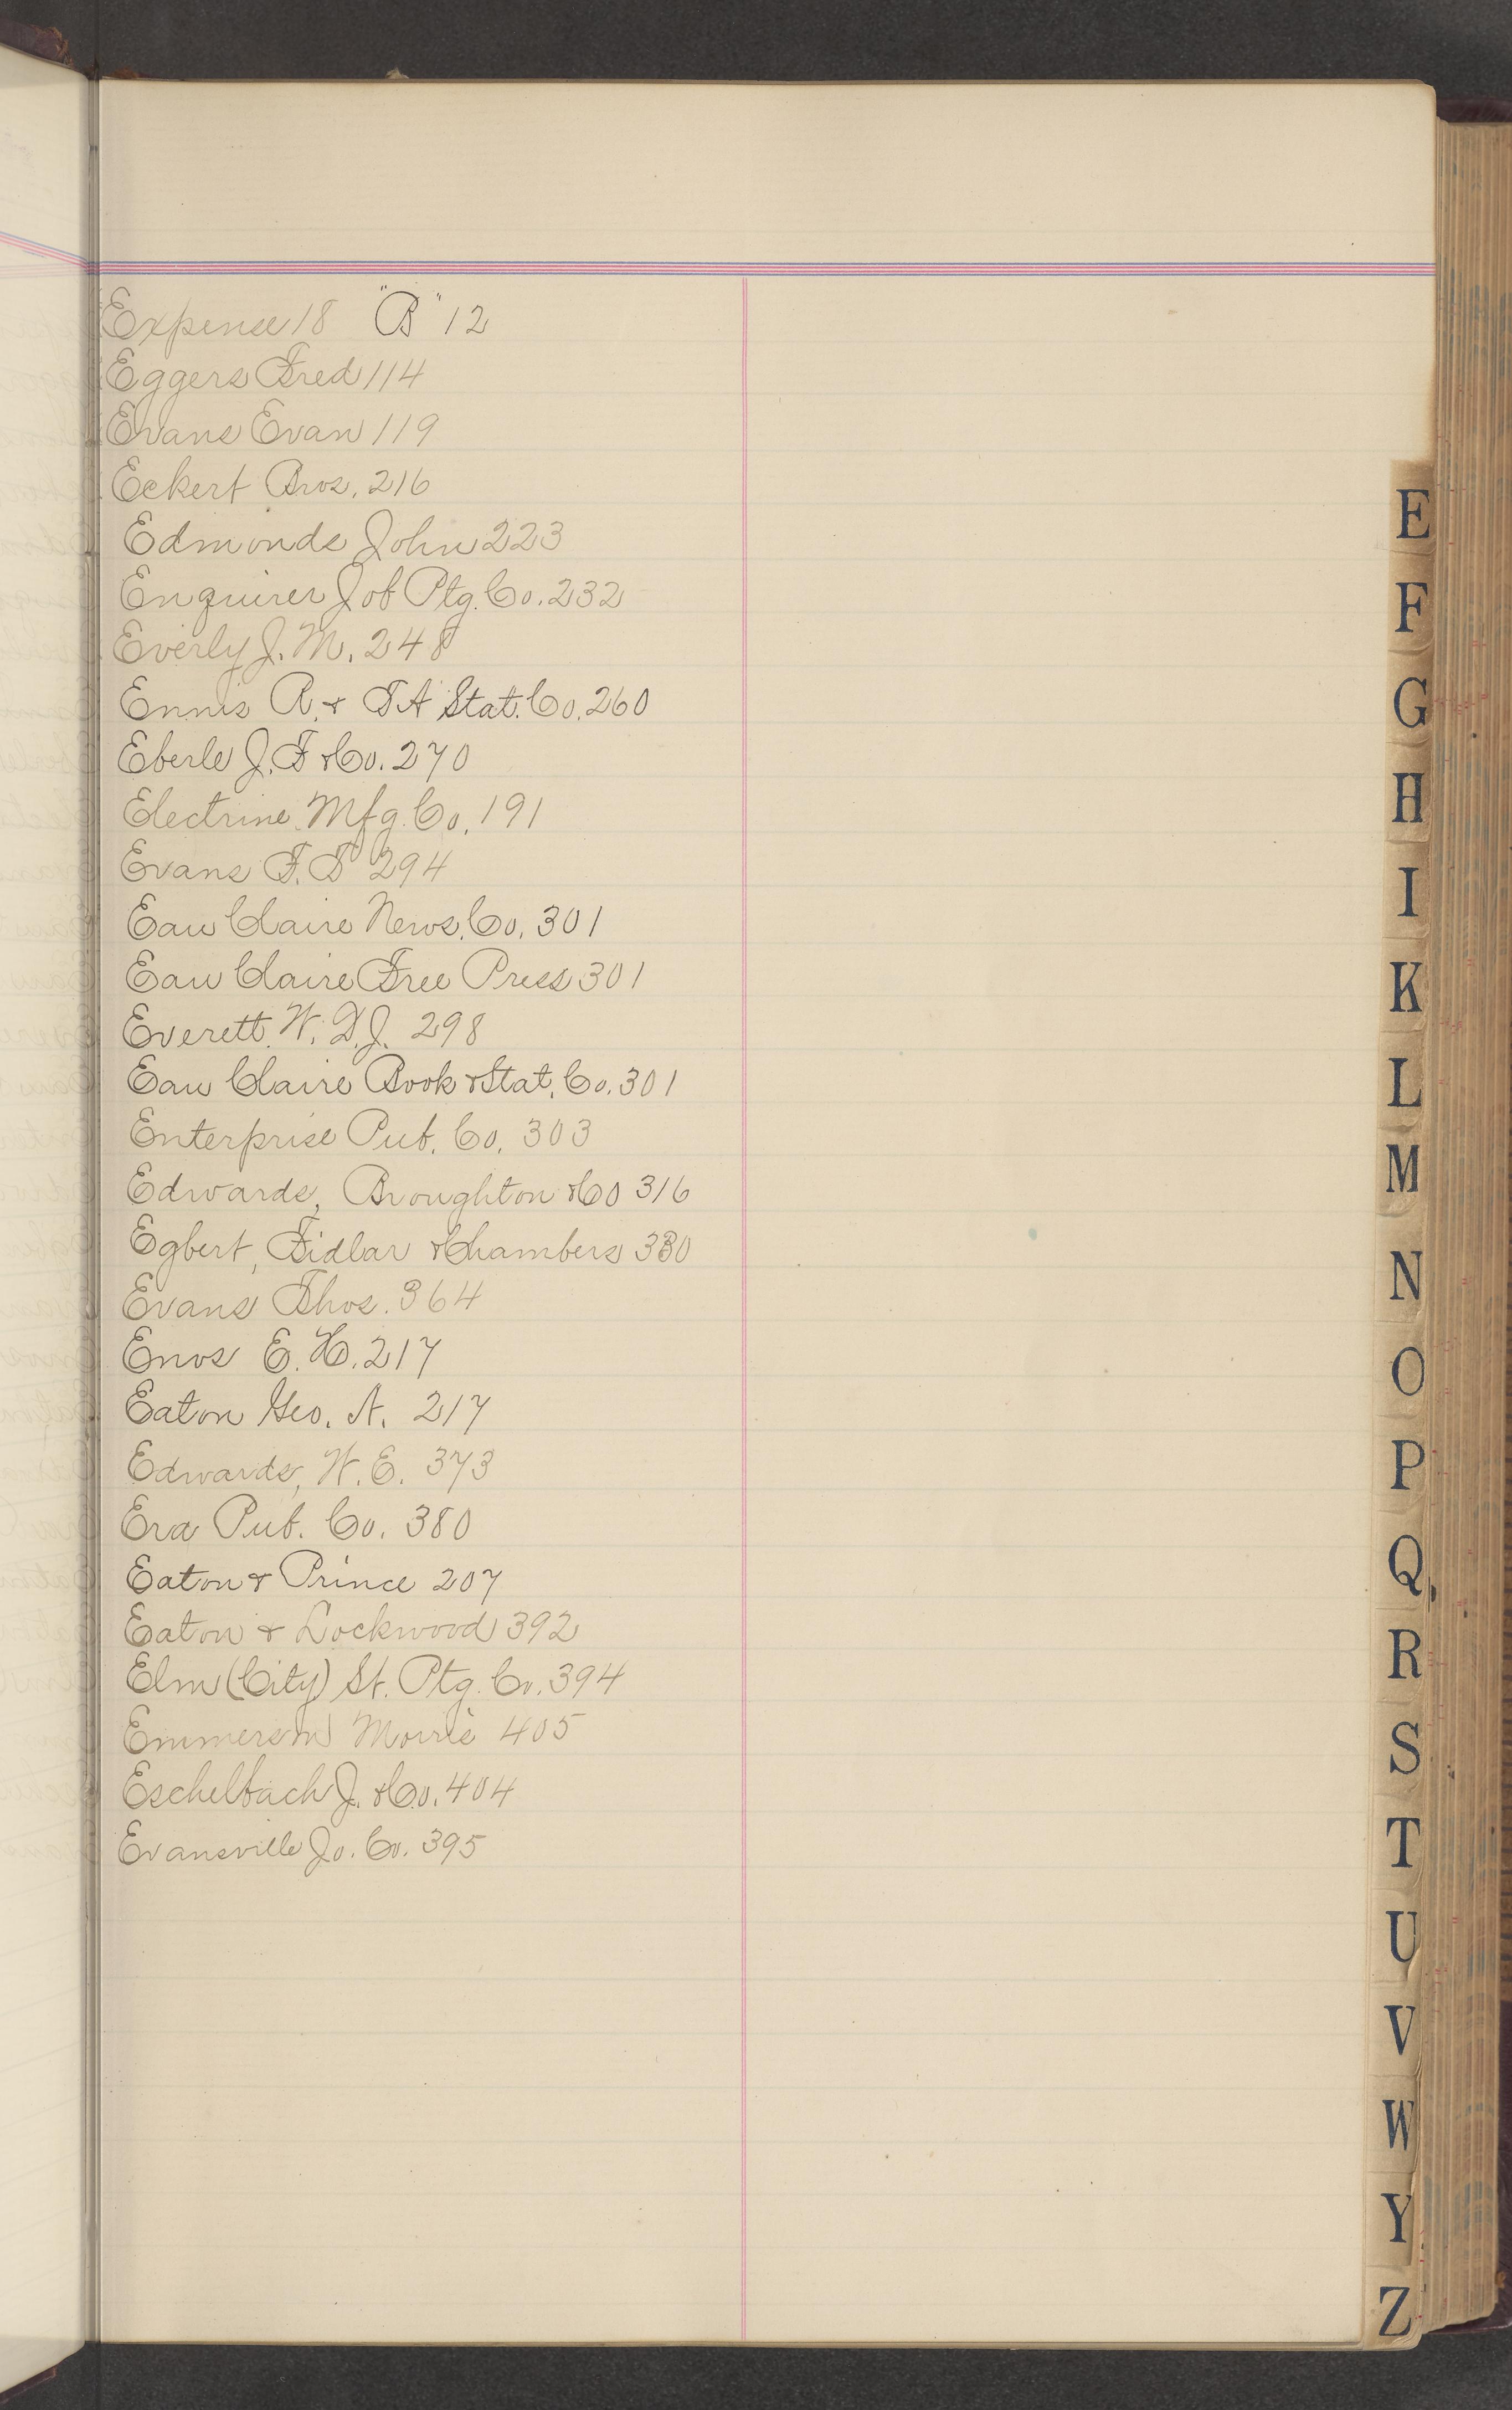 Expense 18 "B" 12
Eggers Fred 114
Evans Evan 119
Eckert Bros. 216
Edmonds John 223
Enquirer Job Ptg. Co. 232
Everly J. M. 248
Ennis R. & TA Stat. Co. 260
Eberle J. F & Co. 270
Electrine Mfg. Co. 191
Evans 294
Eau Claire News Co. 301
Eau Claire Free Press 301
Everett W. D. J. 298
Eau Claire Book & Stat. Co. 301
Enterprise Pub. Co. 303
Edwards, Broughton & Co 316
Egbert, Fidlar & Chambers 330
Evans Thos. 364
Enos E. H. 217
Eaton Geo. A. 217
Edwards, W. E. 373
Era Pub. Co. 380
Eaton & Prince 207
Eaton & Lockwood 392
Elm (City) St. Ptg. Co. 394
Emmerson Morris 405
Eschelbach J. & Co. 404
Evansville Jo. Co. 395
E
F
G
H
I
K
L
M
N
O
P
Q
R
S
T
U
V
W
Y
Z